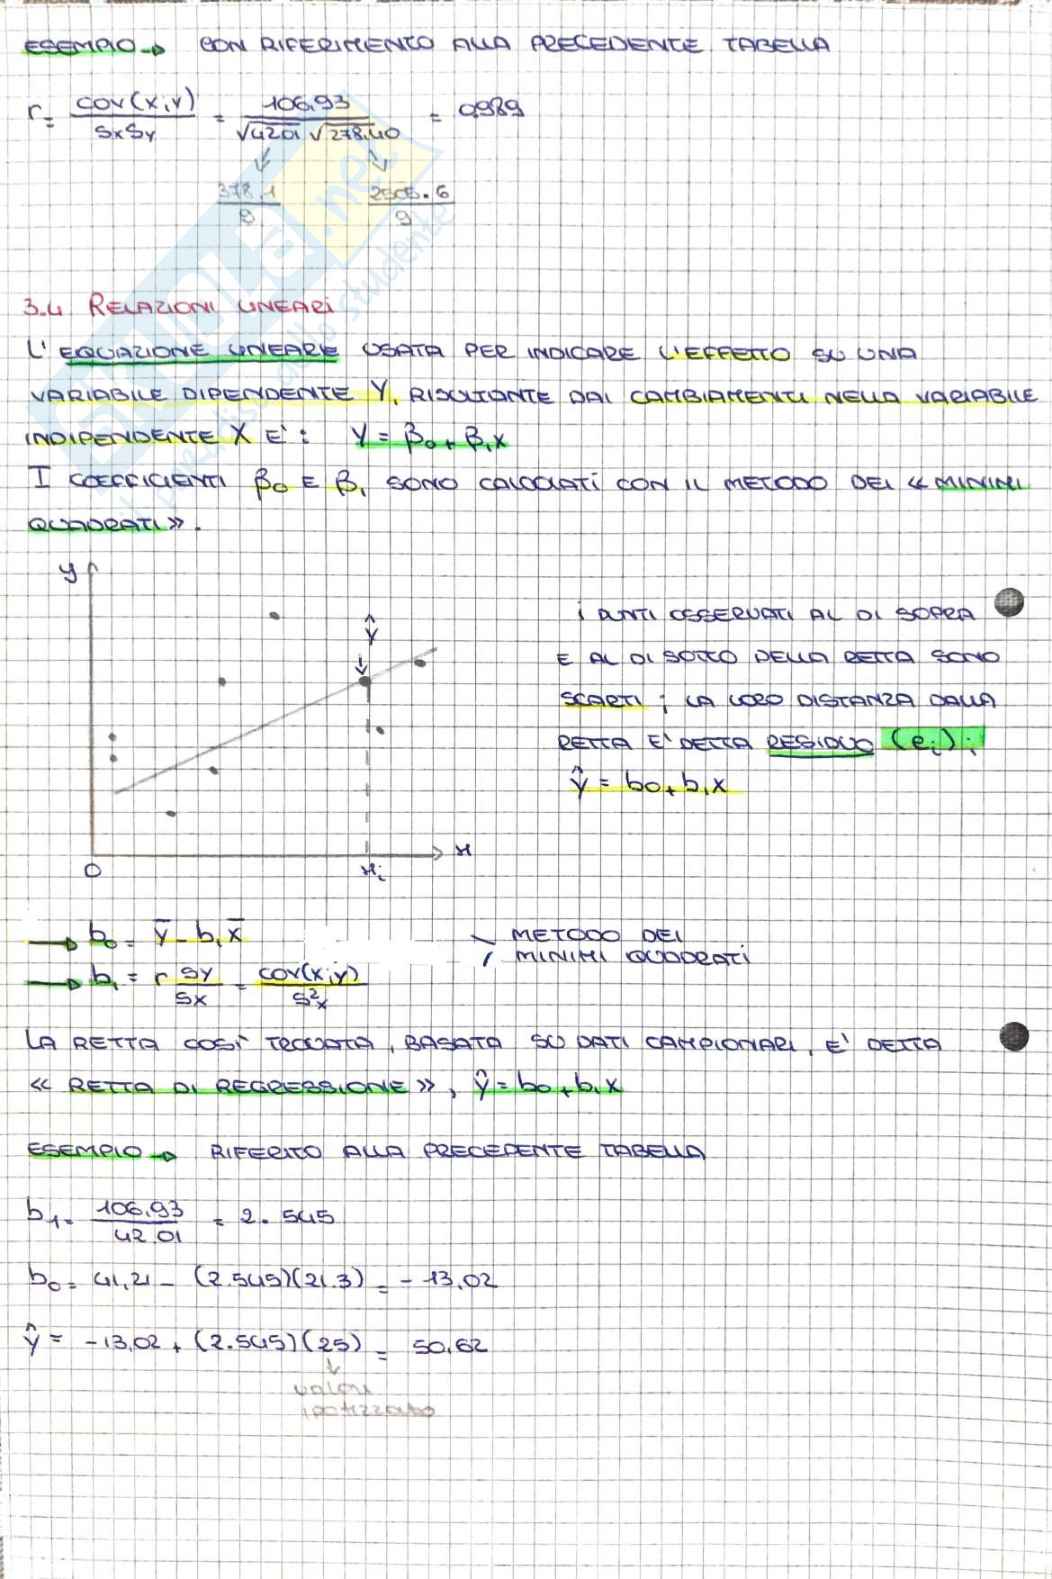 ESEMPIO → CON RIFERIMENTO ALLA PRECEDENTE TABELLA
r = cov(x,y) / SxSy = 106.93 / √42.01 √278.40 = 0,989
378,1 / 9    2505.6 / 9
3.4 RELAZIONI LINEARI
L'EQUAZIONE LINEARE USATA PER INDICARE L'EFFETTO SU UNA
VARIABILE DIPENDENTE Y, RISULTANTE DAI CAMBIAMENTI NELLA VARIABILE
INDIPENDENTE X E': Y = β0 + β1x
I COEFFICIENTI β0 E β1 SONO CALCOLATI CON IL METODO DEI « MINIMI
QUADRATI».
y
ŷ
i PUNTI OSSERVATI AL DI SOPRA
E AL DI SOTTO DELLA RETTA SONO
SCARTI; LA LORO DISTANZA DALLA
RETTA E' DETTA RESIDUO (ei);
ŷ = b0 + b1x
x
0
xi
→ b0 = ȳ - b1x̄
METODO DEI
MINIMI QUADRATI
→ b1 = r Sy / Sx = cov(x,y) / S²x
LA RETTA COSI' TROVATA, BASATA SU DATI CAMPIONARI, E' DETTA
« RETTA DI REGRESSIONE», ŷ = b0 + b1x
ESEMPIO → RIFERITO ALLA PRECEDENTE TABELLA
b1 = 106.93 / 42.01 = 2.545
b0 = 41,21 - (2.545)(21.3) = -13,02
ŷ = -13,02 + (2.545)(25) = 50,62
valore
ipotizzato